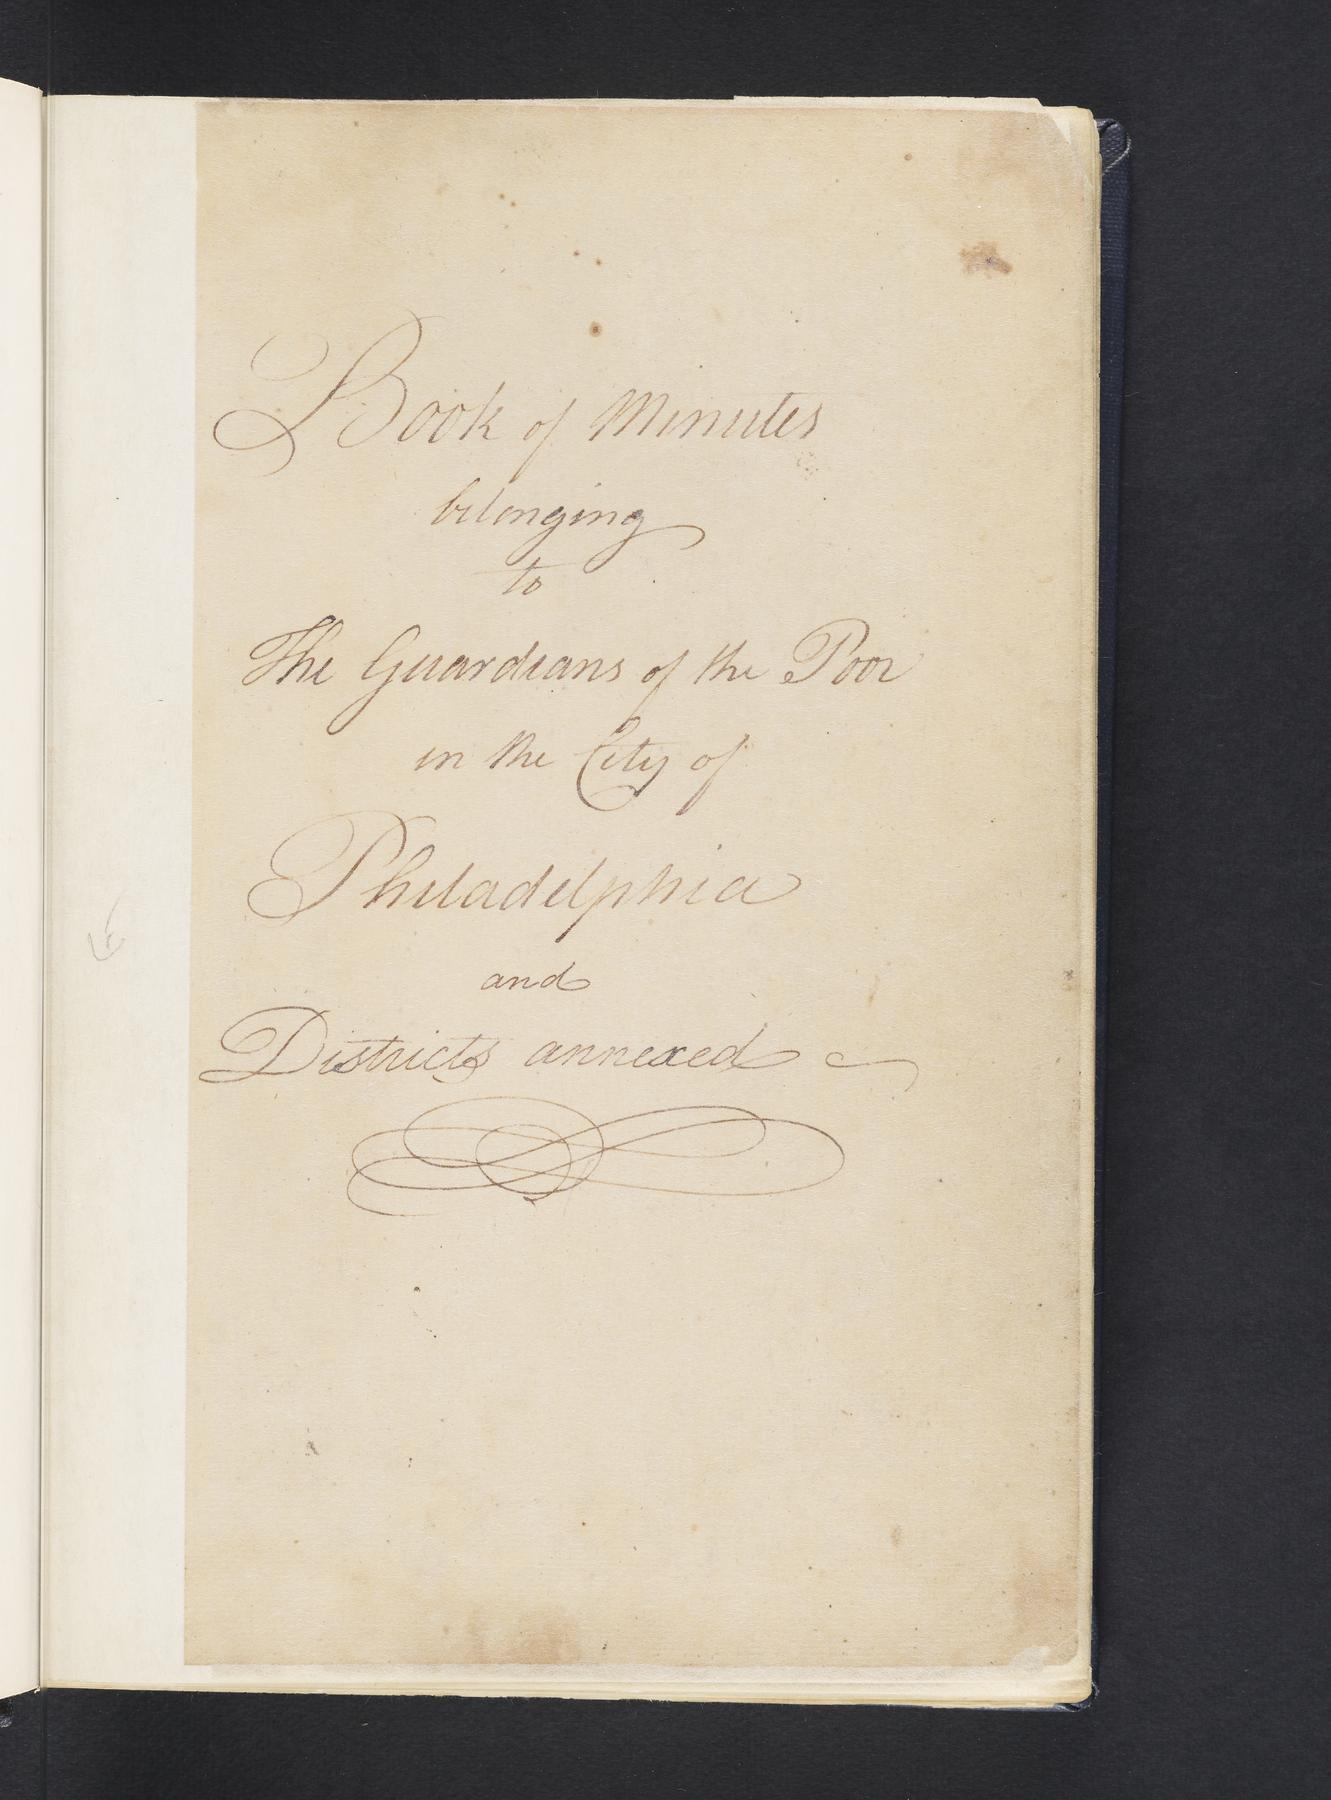 Book of Minutes
belonging
to
The Guardians of the Poor
in the City of
Philadelphia
and
Districts annexed